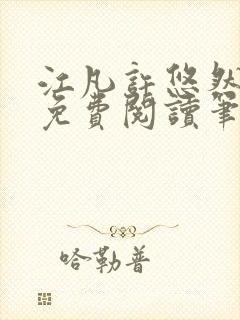 江凡許悠然
免費閱讀筆
哈勒普